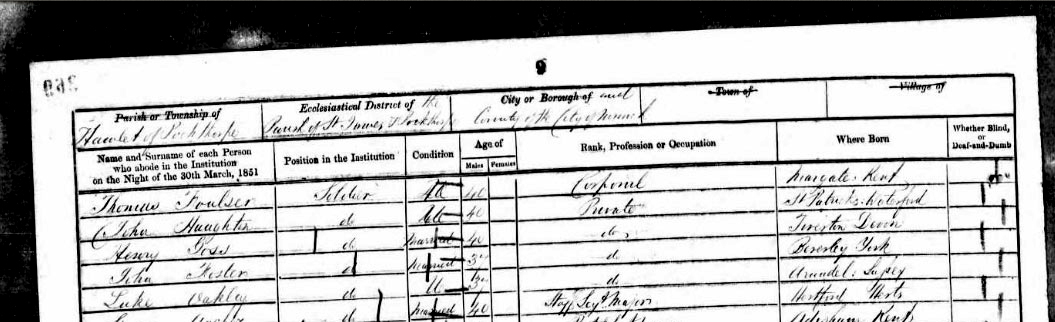 9
Parish or Township of Ecclesiastical District of the City or Borough of and Town of Village of
Hamlet of Pockthorpe Parish of St James Pockthorpe County of the City of Norwich
Name and Surname of each Person who abode in the Institution on the Night of the 30th March, 1851 Position in the Institution Condition Age of Males Females Rank, Profession or Occupation Where Born Whether Blind, or Deaf-and-Dumb
Thomas Foulser Soldier 40 Corporal Margate Kent
John Haughton do 40 Private St Patricks Waterford
Henry do Married 40 do Tiverton Devon
John Foster d Married do Beverley York
Luke Oakley do U do Arundel
do Married 40 Staff Sejt Major Hertford Herts
Kent